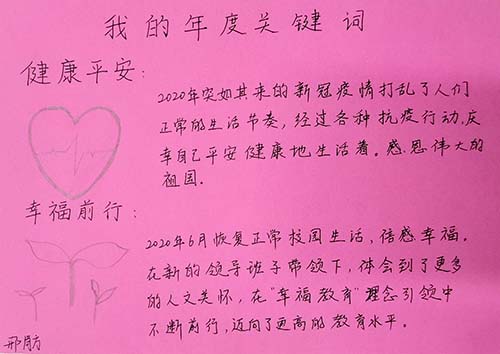 我的年度关键词
健康平安：
2020年突如其来的新冠疫情打乱了人们
正常的生活节奏，经过各种抗疫行动，庆
幸自己平安健康地生活着。感恩伟大的
祖国.
幸福前行：
2020年6月恢复正常校园生活，倍感幸福。
在新的领导班子带领下，体会到了更多
的人文关怀，在“幸福教育”理念引领中
不断前行，迈向了更高的教育水平。
邢昉